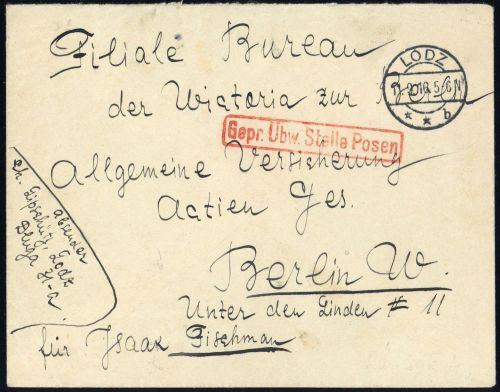 Filiale Bureau
der Wictoria zur
LODZ
5-6N
* * b
Gepr. Übw. Stelle Posen
Allgemeine Versicherung
Actien Ges.
Berlin W.
Unter den Linden # 11
für Isaak Fischman
absender
Lipschütz, Lodz
Dluga 31-a